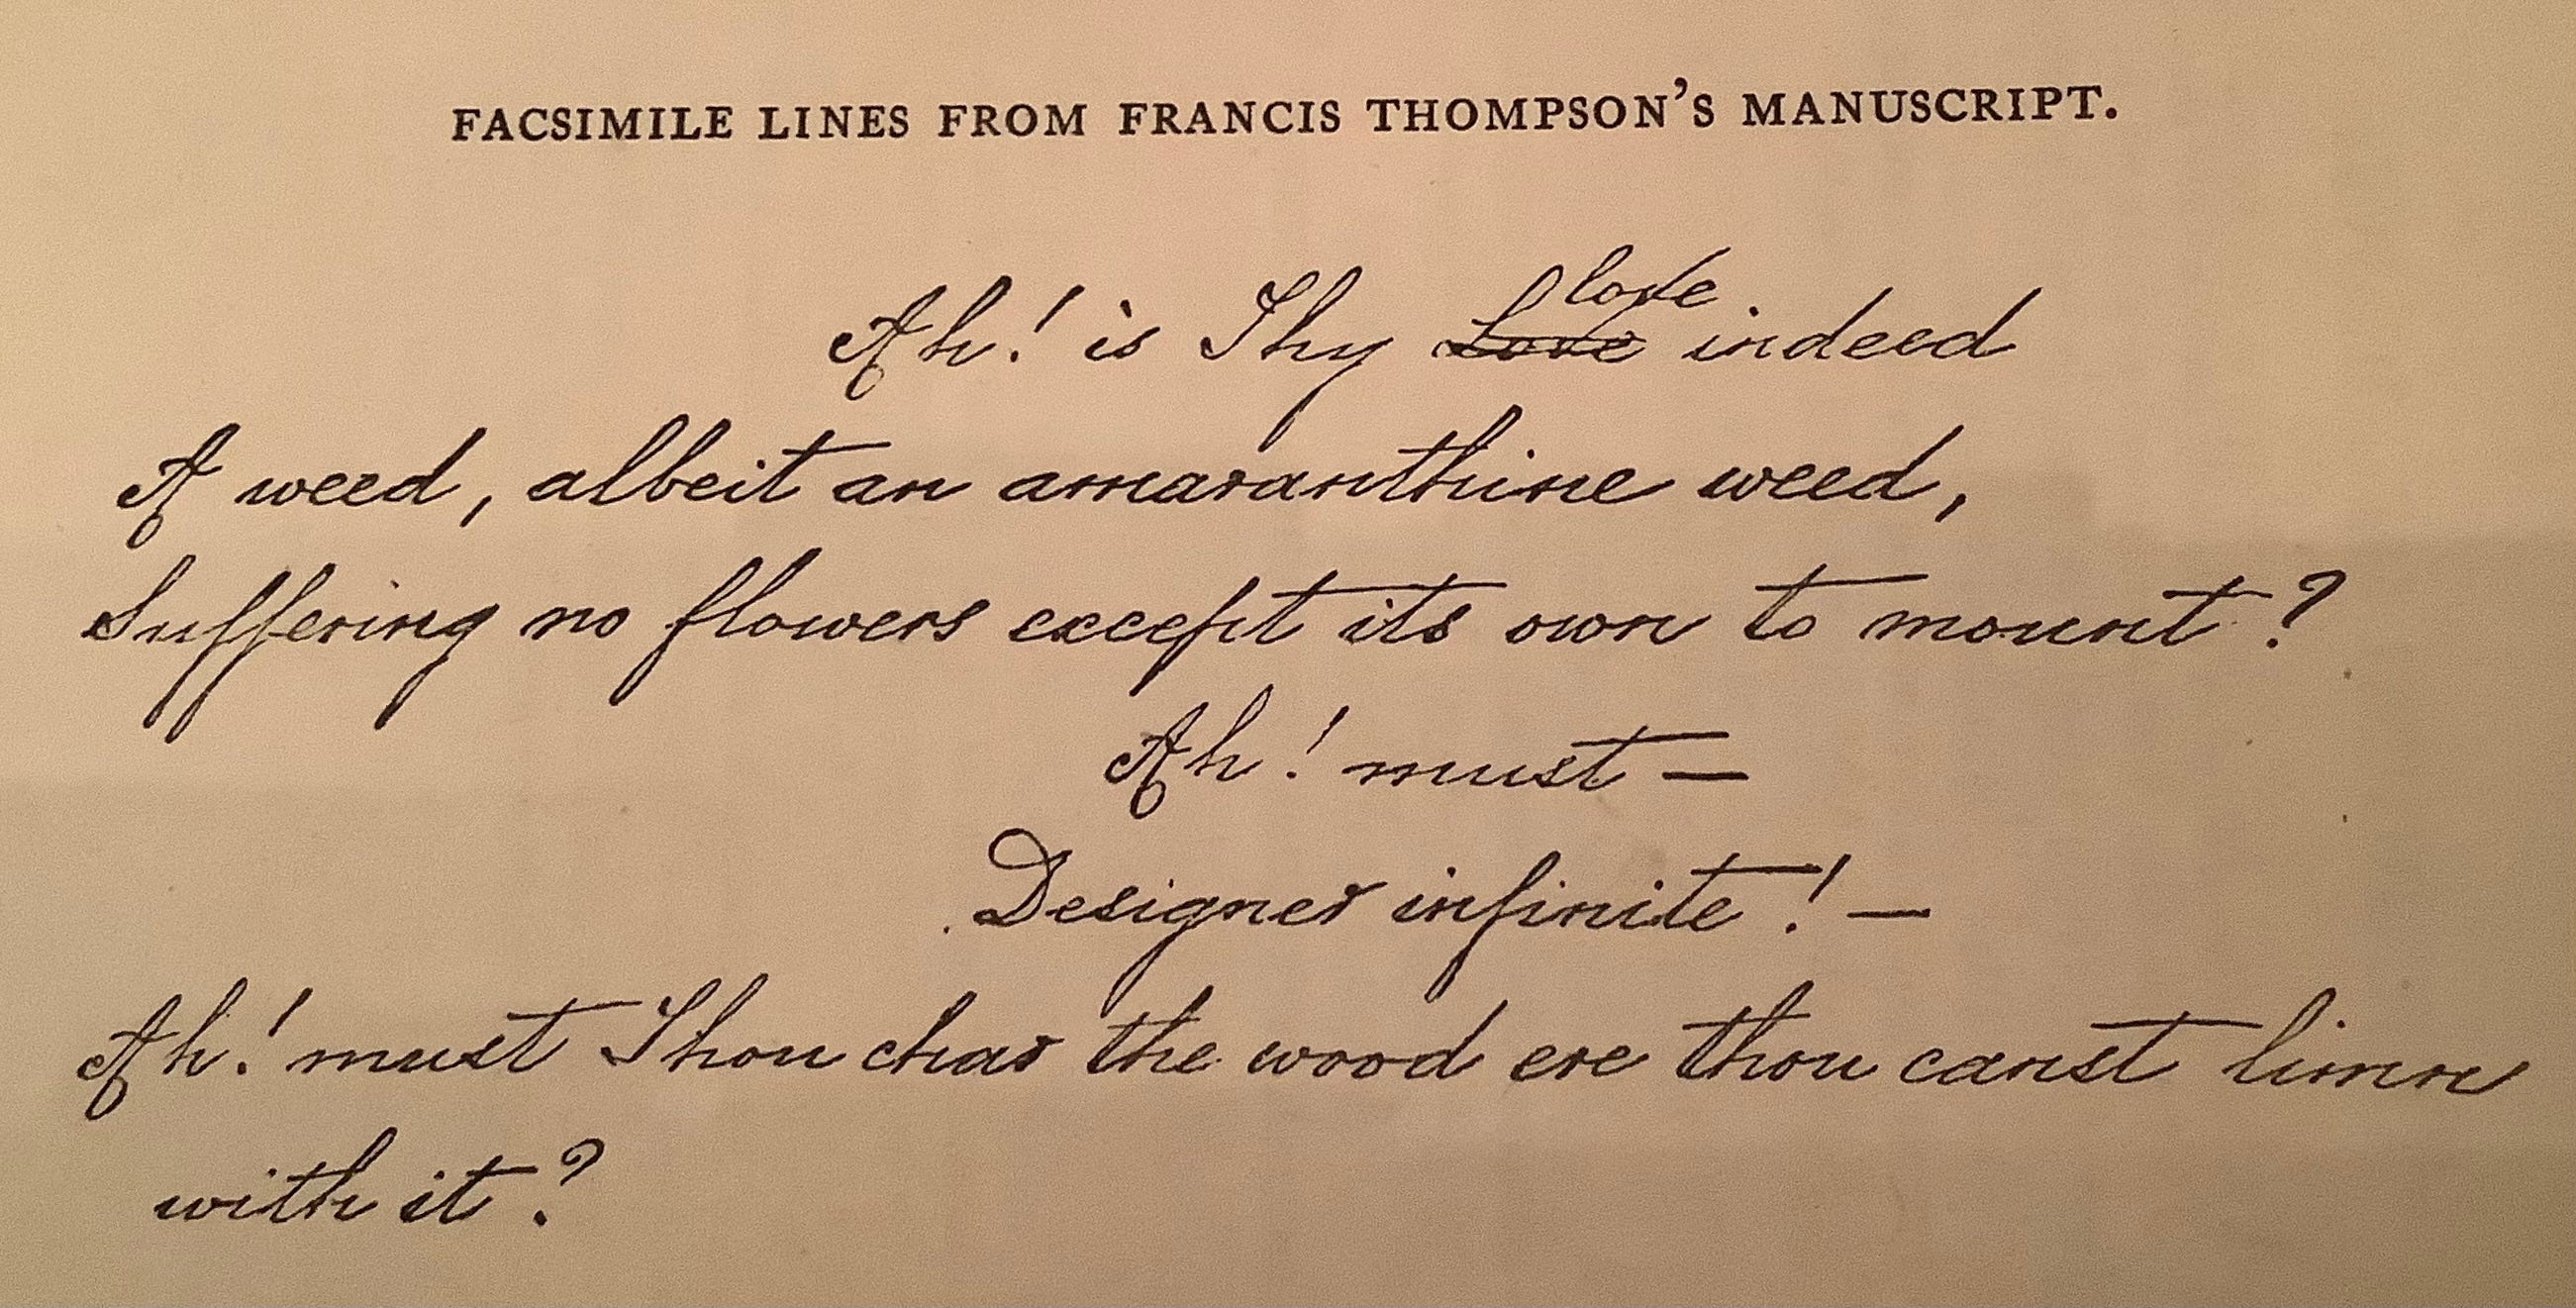 FACSIMILE LINES FROM FRANCIS THOMPSON'S MANUSCRIPT.
love
Ah! is Thy Love indeed
A weed, albeit an amaranthine weed,
Suffering no flowers except its own to mount?
Ah! must —
Designer infinite! —
Ah! must Thou char the wood ere thou canst limn
with it?